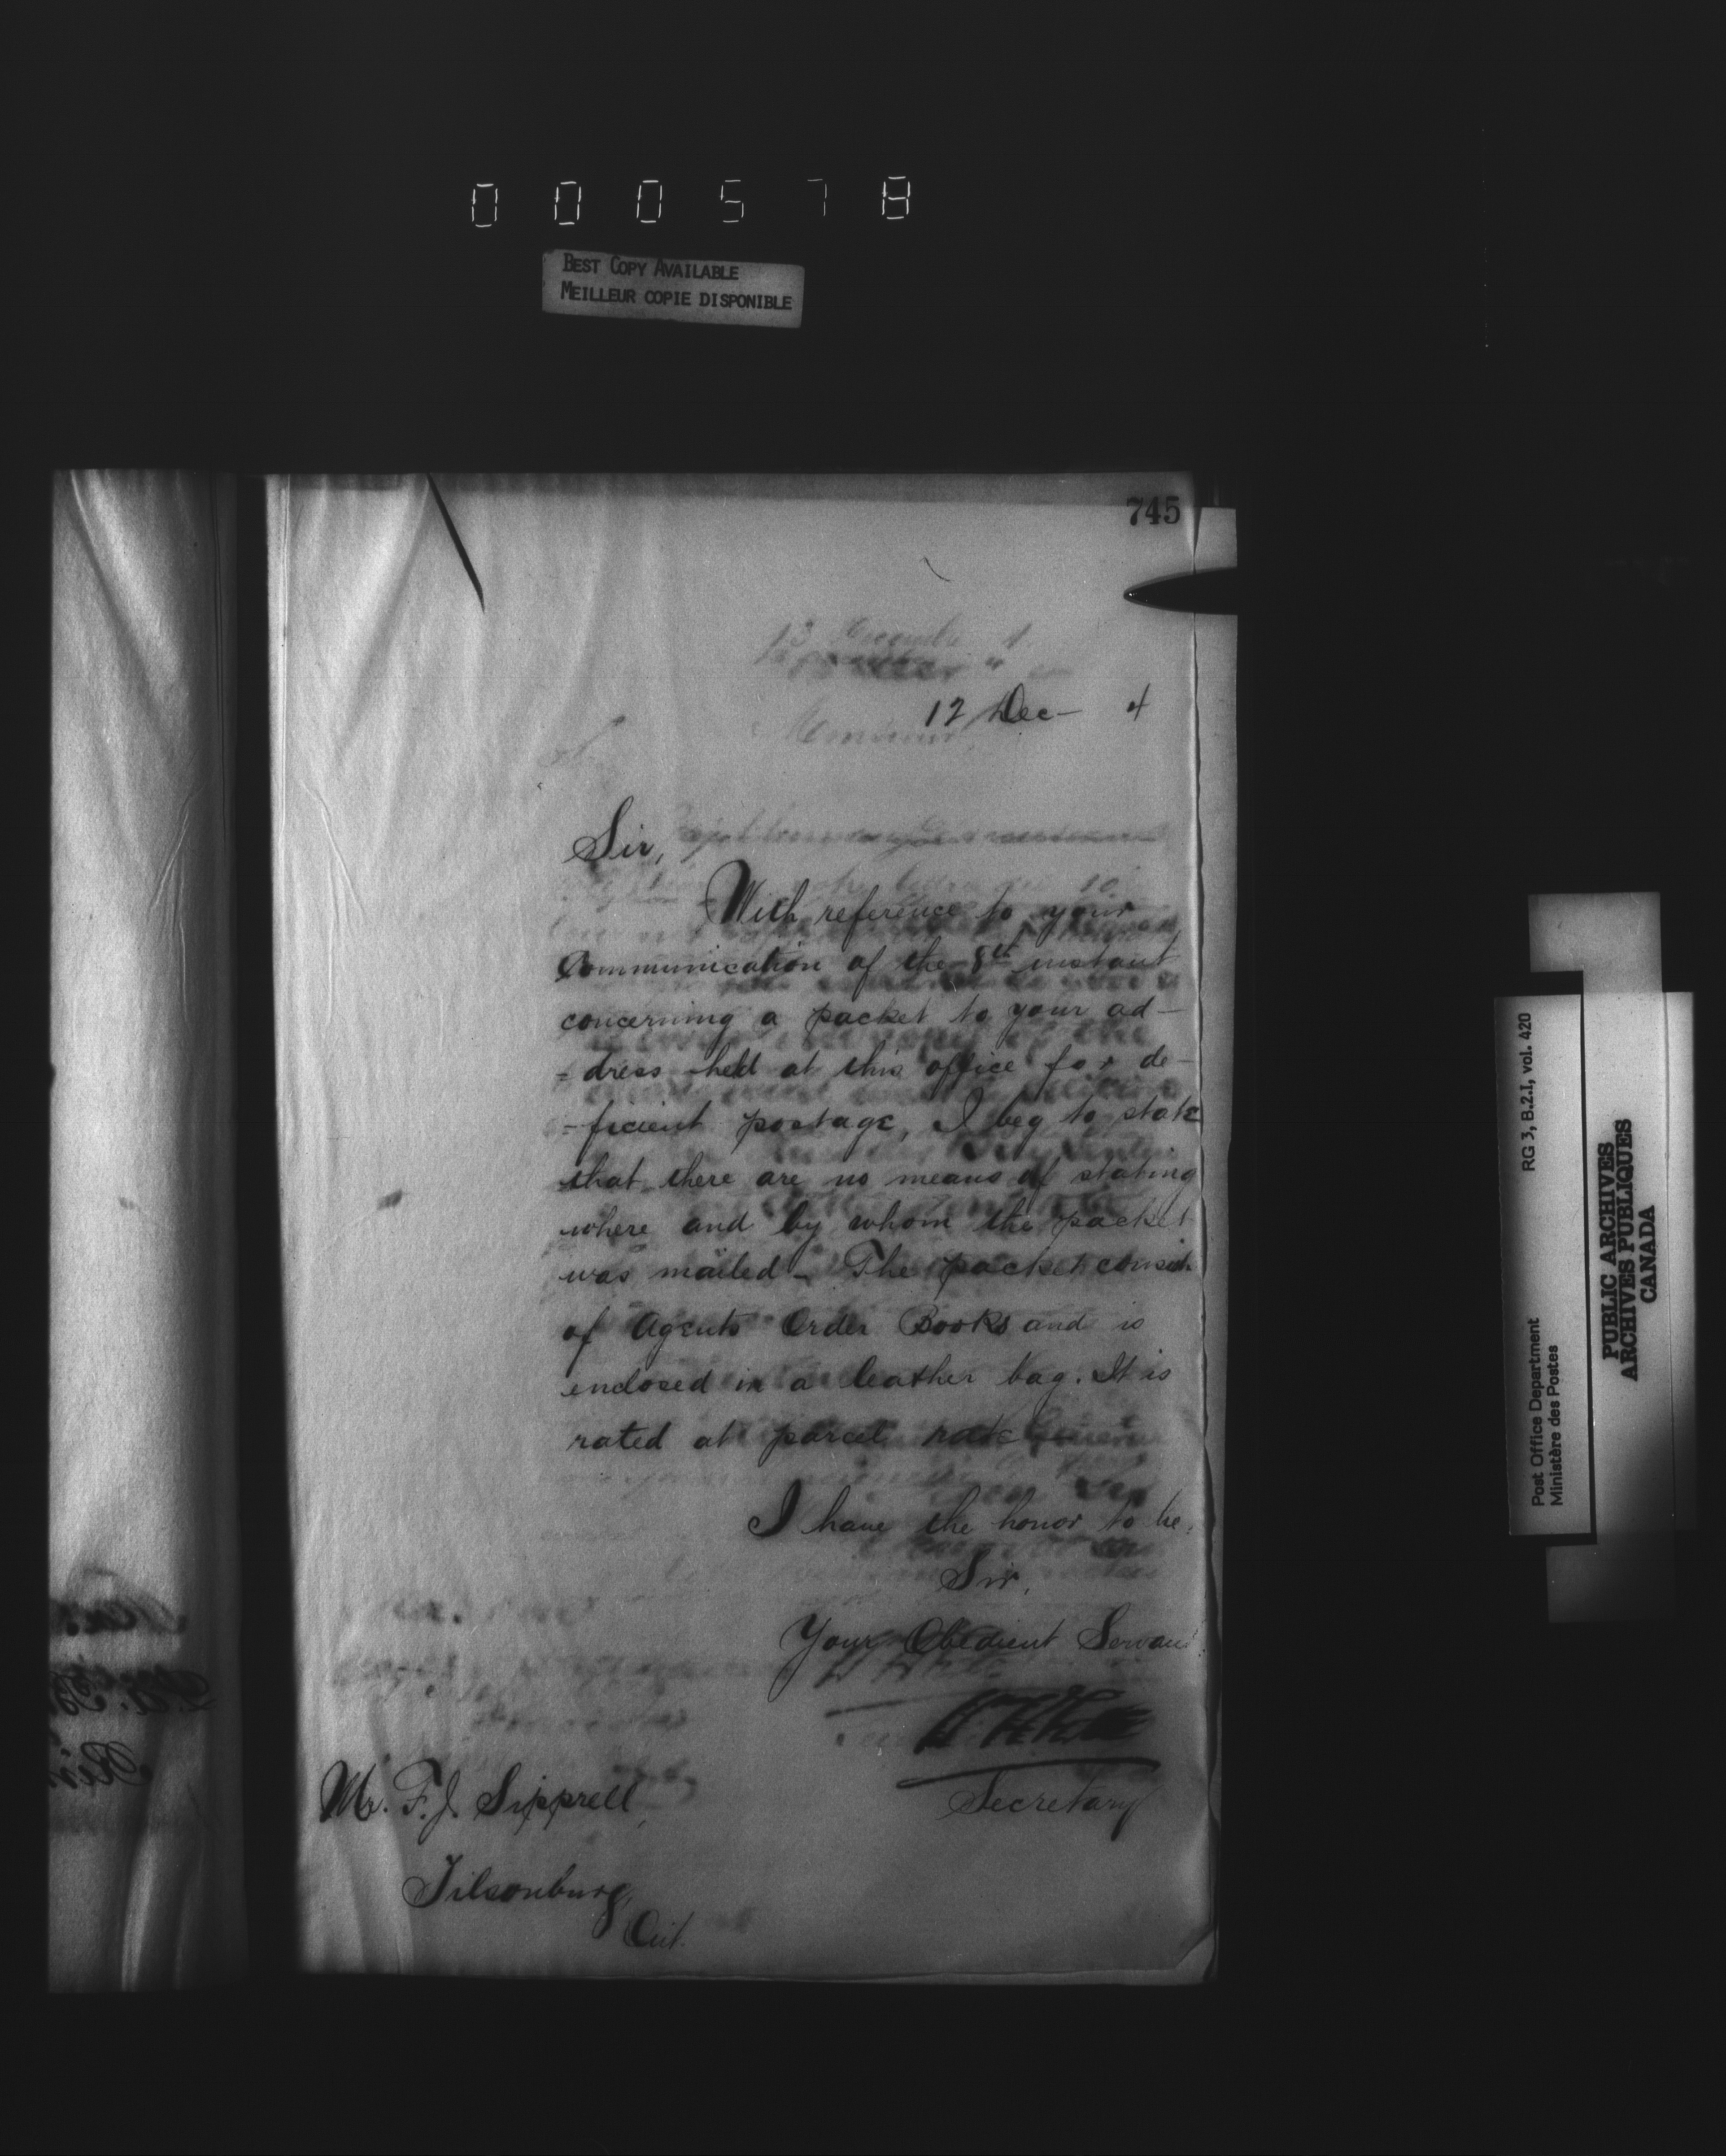 000578
BEST COPY AVAILABLE
MEILLEUR COPIE DISPONIBLE
745
12 Dec - 4
Sir,
With reference to your
Communication of the 8th instant
concerning a packet to your ad-
-dress held at this office for de-
=ficient postage, I beg to state
that there are no means of stating
where and by whom the packet
was mailed - The packet consists
of Agents Order Books and is
enclosed in a leather bag. It is
rated at parcel rate
I have the honor to be,
Sir,
Your Obedient Servant
Secretary
Mr. F. J. Sipprell,
Tilsonburg,
Ont.
RG 3, B.2.I, vol. 420
Post Office Department
Ministère des Postes
PUBLIC ARCHIVES
ARCHIVES PUBLIQUES
CANADA